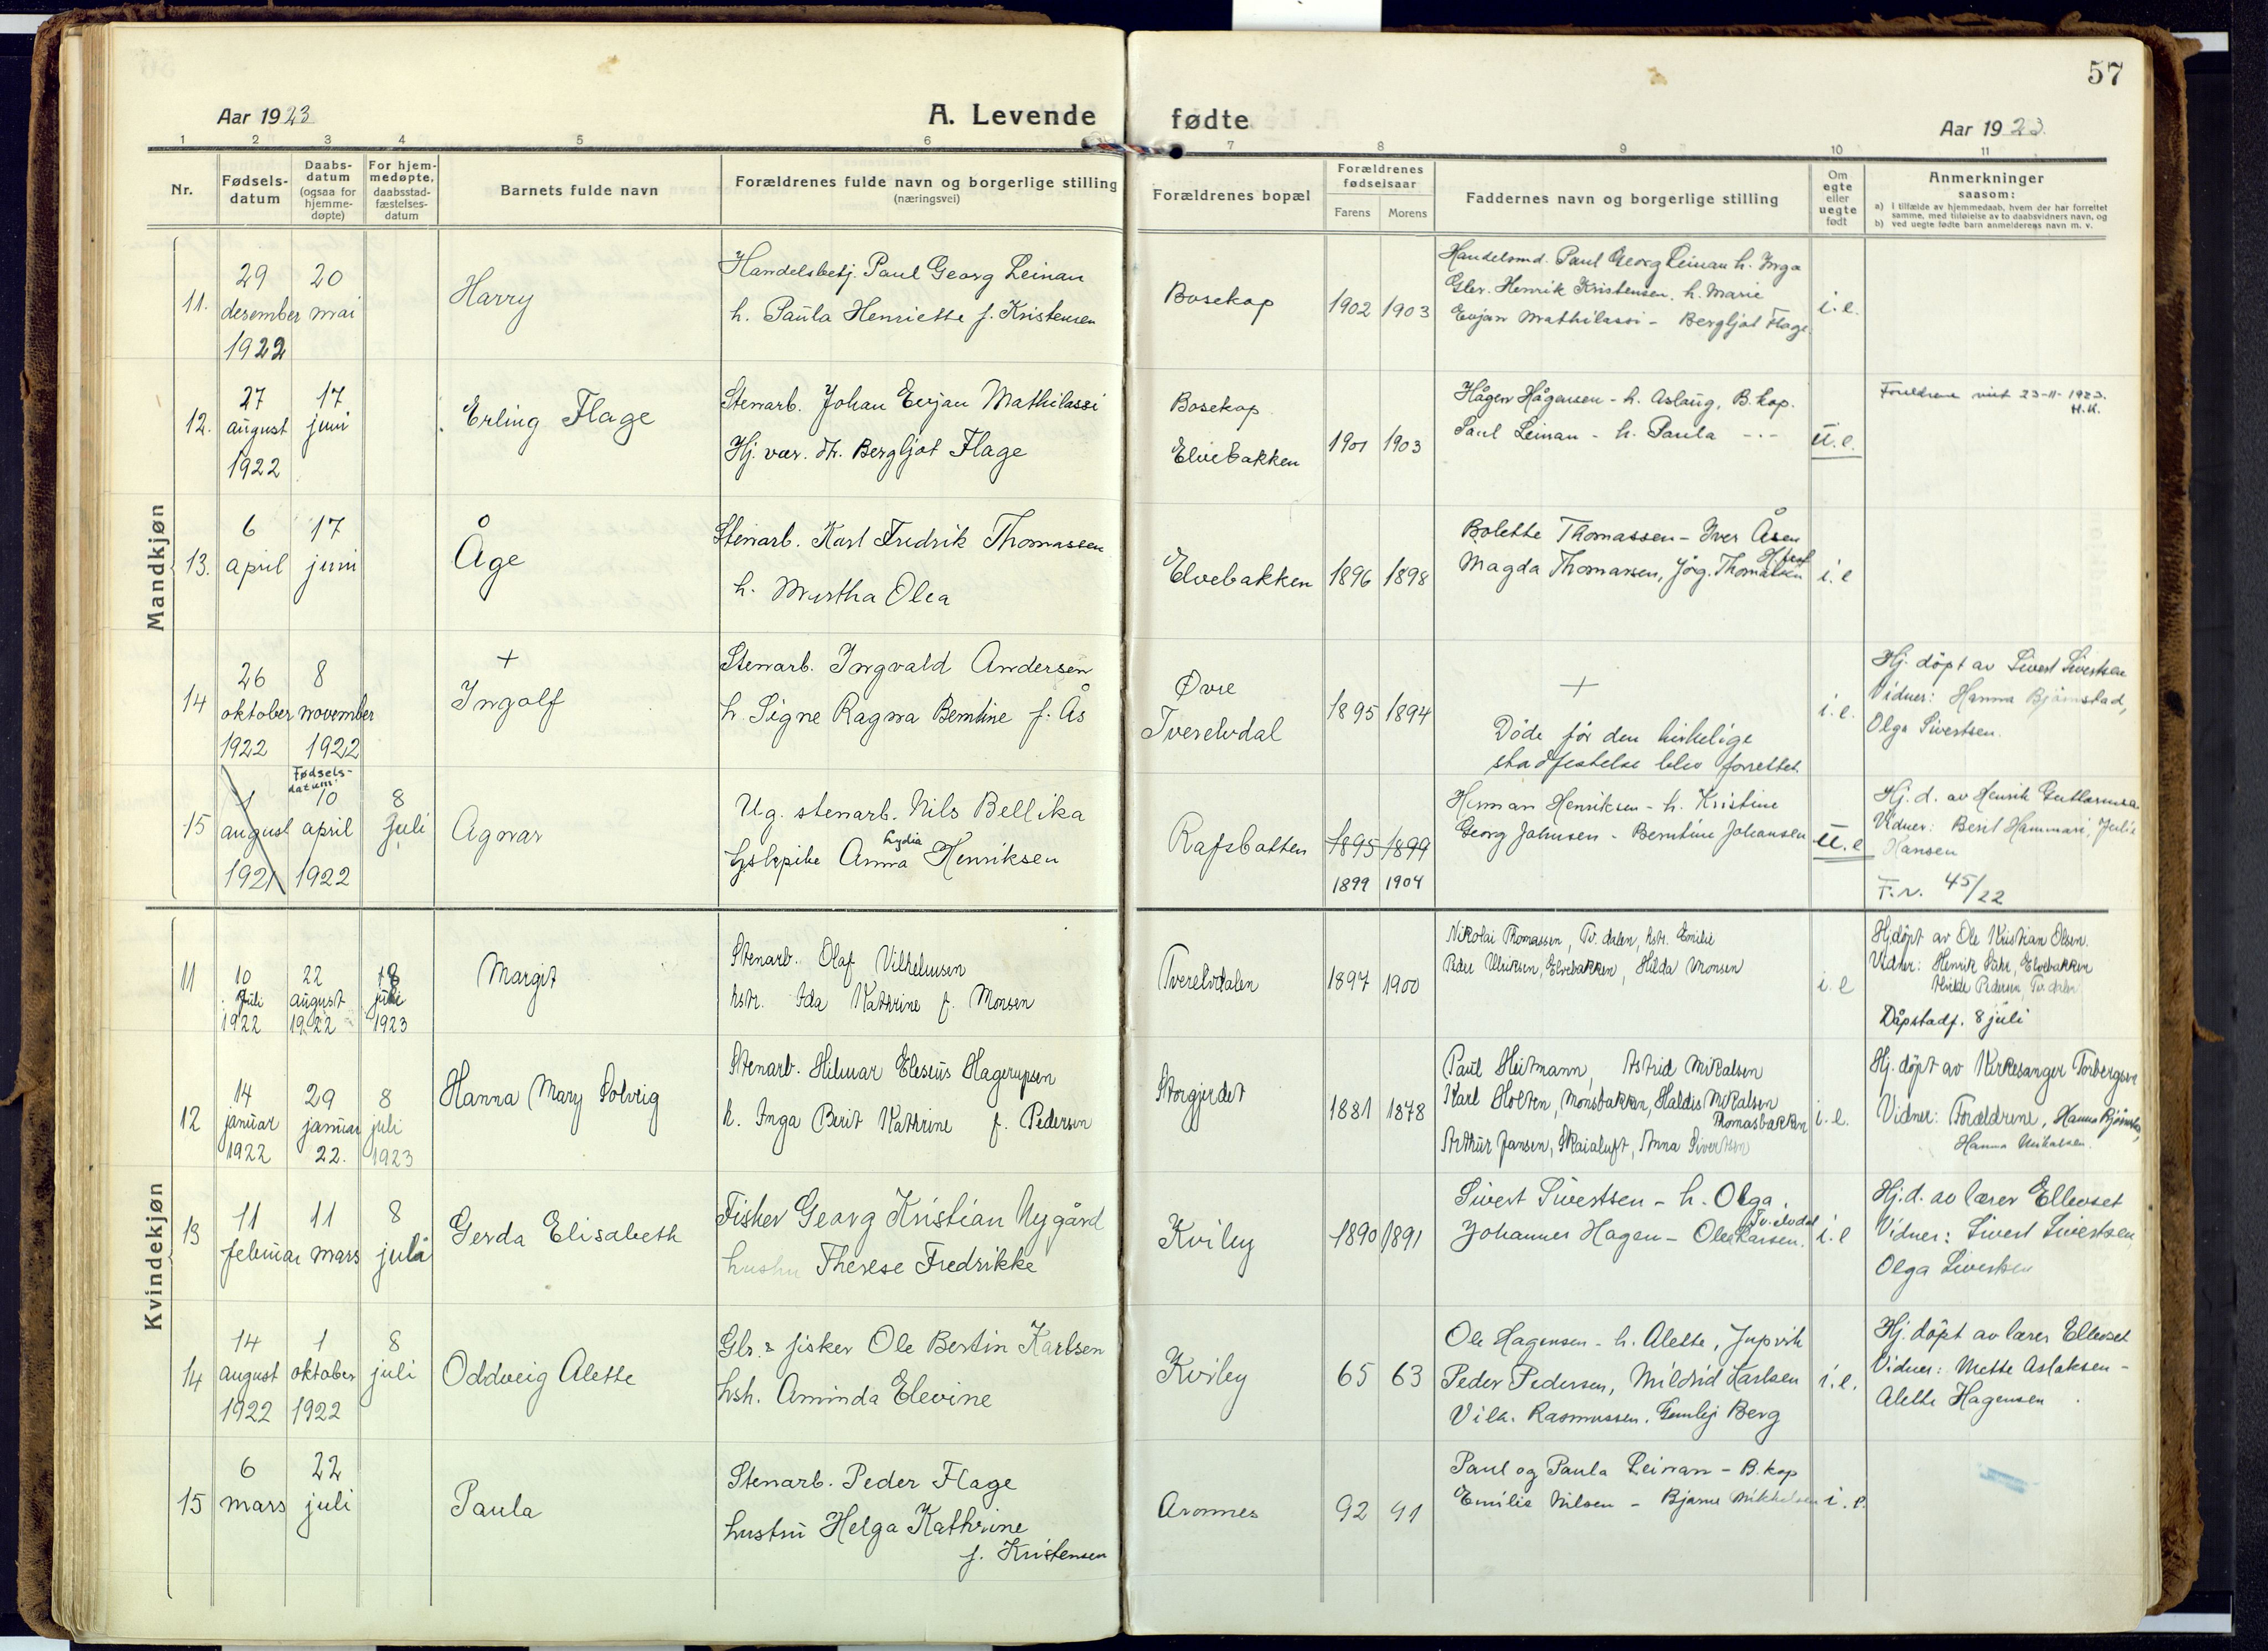 57
Aar 1923
A. Levende fødte
Aar 1923
1 2 3 4 5 6 7 8 9 10 11
Nr.
Fødsels-
datum
Daabs-
datum
(ogsaa for
hjemme-
døpte)
For hjem-
medøpte,
daabsstad-
fæstelses-
datum
Barnets fulde navn
Forældrenes fulde navn og borgerlige stilling
(næringsvei)
Forældrenes bopæl
Forældrenes
fødselsaar
Farens Morens
Faddernes navn og borgerlige stilling
Om
egte
eller
uegte
født
Anmerkninger
saasom:
a) I tilfælde av hjemmedaab, hvem der har forrettet
samme, med tilføielse av to daabsvidners navn, og
b) ved uegte fødte barn anmelderens navn m. v.
Mandkjøn
11.
29
desember
1922
20
mai
Harry
Handelsbetj. Paul Georg Leinan
h. Paula Henriette f. Kristensen
Bosekop
1902 1903
Handelsmd. Paul Georg Leinan h. Inga
Gbr. Henrik Kristensen, h. Marie
Evjan Mathilassi - Bergljot Flage.
i.e.
12.
27
august
1922
17
juni
Erling Flage
Stenarb. Johan Evjan Mathilassi
Hj. vær. dtr. Bergljot Flage
Bosekop
Elvebakken
1901 1903
Hågen Hågensen - h. Aslaug, B.kop.
Paul Leinan - h. Paula -.-
u.e.
Foreldrene viet 23-11-1923.
H.K.
13.
6
april
17
juni
Åge
Stenarb. Karl Fredrik Thomassen
h. Martha Olea
Elvebakken
1896 1898
Bolette Thomassen - Iver Åsen
Magda Thomassen, Jörg. Thomassen
i.e
14
26
oktober
1922
8
november
1922
+
Ingolf
Stenarb. Ingvald Andersen
h. Signe Ragna Berntine f. Ås
Øvre
Tverelvdal
1895 1894
+
Döde för den kirkelige
stadfestelse blev forrettet.
i.e.
Hj. döpt av Sivert Sivertsen
Vidner: Hanna Björnstad,
Olga Sivertsen.
15
1
august
1921
Fødsels-
datum
10
april
1922
8
juli
Agnar
Ug. stenarb. Nils Bellika
Lydia
Anna Henriksen
Rafsbotten
1895 1899
1899 1904
Herman Henriksen - h. Kristine
Georg Johnsen - Berntine Johansen
u.e
Hj. d. av Henrik
Vidner: Berit Hammari, Julie
Hansen
T.r. 45/22
Kvindekjøn
11
10
juli
1922
22
august
1922
8
juli
1923
Margit
Stenarb. Olaf Vilhelmsen
hstr. Ida Kathrine f. Monsen
Tverelvdalen
1897 1900
Nikolai Thomassen, Tv. dalen, hstr. Emilie
Peder Ulriksen, Elvebakken, Hilda Monsen
i.e
Hjdöpt av Ole Kristian Olsen.
Vidner: Henrik Elvebakken
Pedersen, Tv. dalen
Dåpstadf. 8 juli
12
14
januar
1922
29
januar
22.
8
juli
1923
Hanna Mary Solveig
Stenarb. Hilmar Eleseus Hagerupsen
h. Inga Berit Kathrine f. Pedersen
Storgjerdet
1881 1878
Paul Heitmann, Astrid Mikalsen
Karl Holten, Monsbakken, Haldis Mikalsen
Thomasbakken
Arthur Jansen, Skaialuft, Anna Sivertsen
i.e.
Hj. döpt av Kirkesanger Torbergsen
Vidner: Forældrene, Hanna Björnstad,
Hanna Mikalsen.
13
11
februar
11
mars
8
juli
Gerda Elisabeth
Fisker Georg Kristian Nygård
hustru Therese Fredrikke
Kviby
1890 1891
Sivert Sivertsen - h. Olga,
Tv.elvdal
Johannes Hagen - Ole Larsen.
i.e
Hj.d. av lærer Ellevset
Vidner: Sivert Sivertsen,
Olga Sivertsen
14
14
august
1922
1
oktober
1922
8
juli
Oddveig Alette
Gbr. & fisker Ole Bertin Karlsen
hsh. Aminda Elevine
Kviby
65 63
Ole Hagensen - h. Alette, Jupvik
Peder Pedersen, Mildrid Karlsen
Vilh. Rasmussen, Berg
i.e.
Hj. döpt av lærer Ellevset
Vidner: Mette Aslaksen -
Alette Hagensen
15
6
mars
22
juli
Paula
Stenarb. Peder Flage
hustru Helga Kathrine
f. Kristensen
Aronnes
92 91
Paul og Paula Leinan - B.kop
Emilie Nilsen - Bjarne Mikkelsen
i.e.